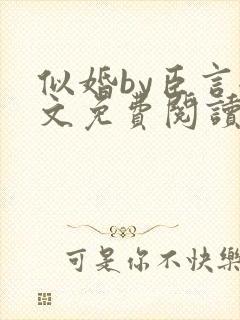 似婚by臣言
文免費閱讀
可是你不快樂